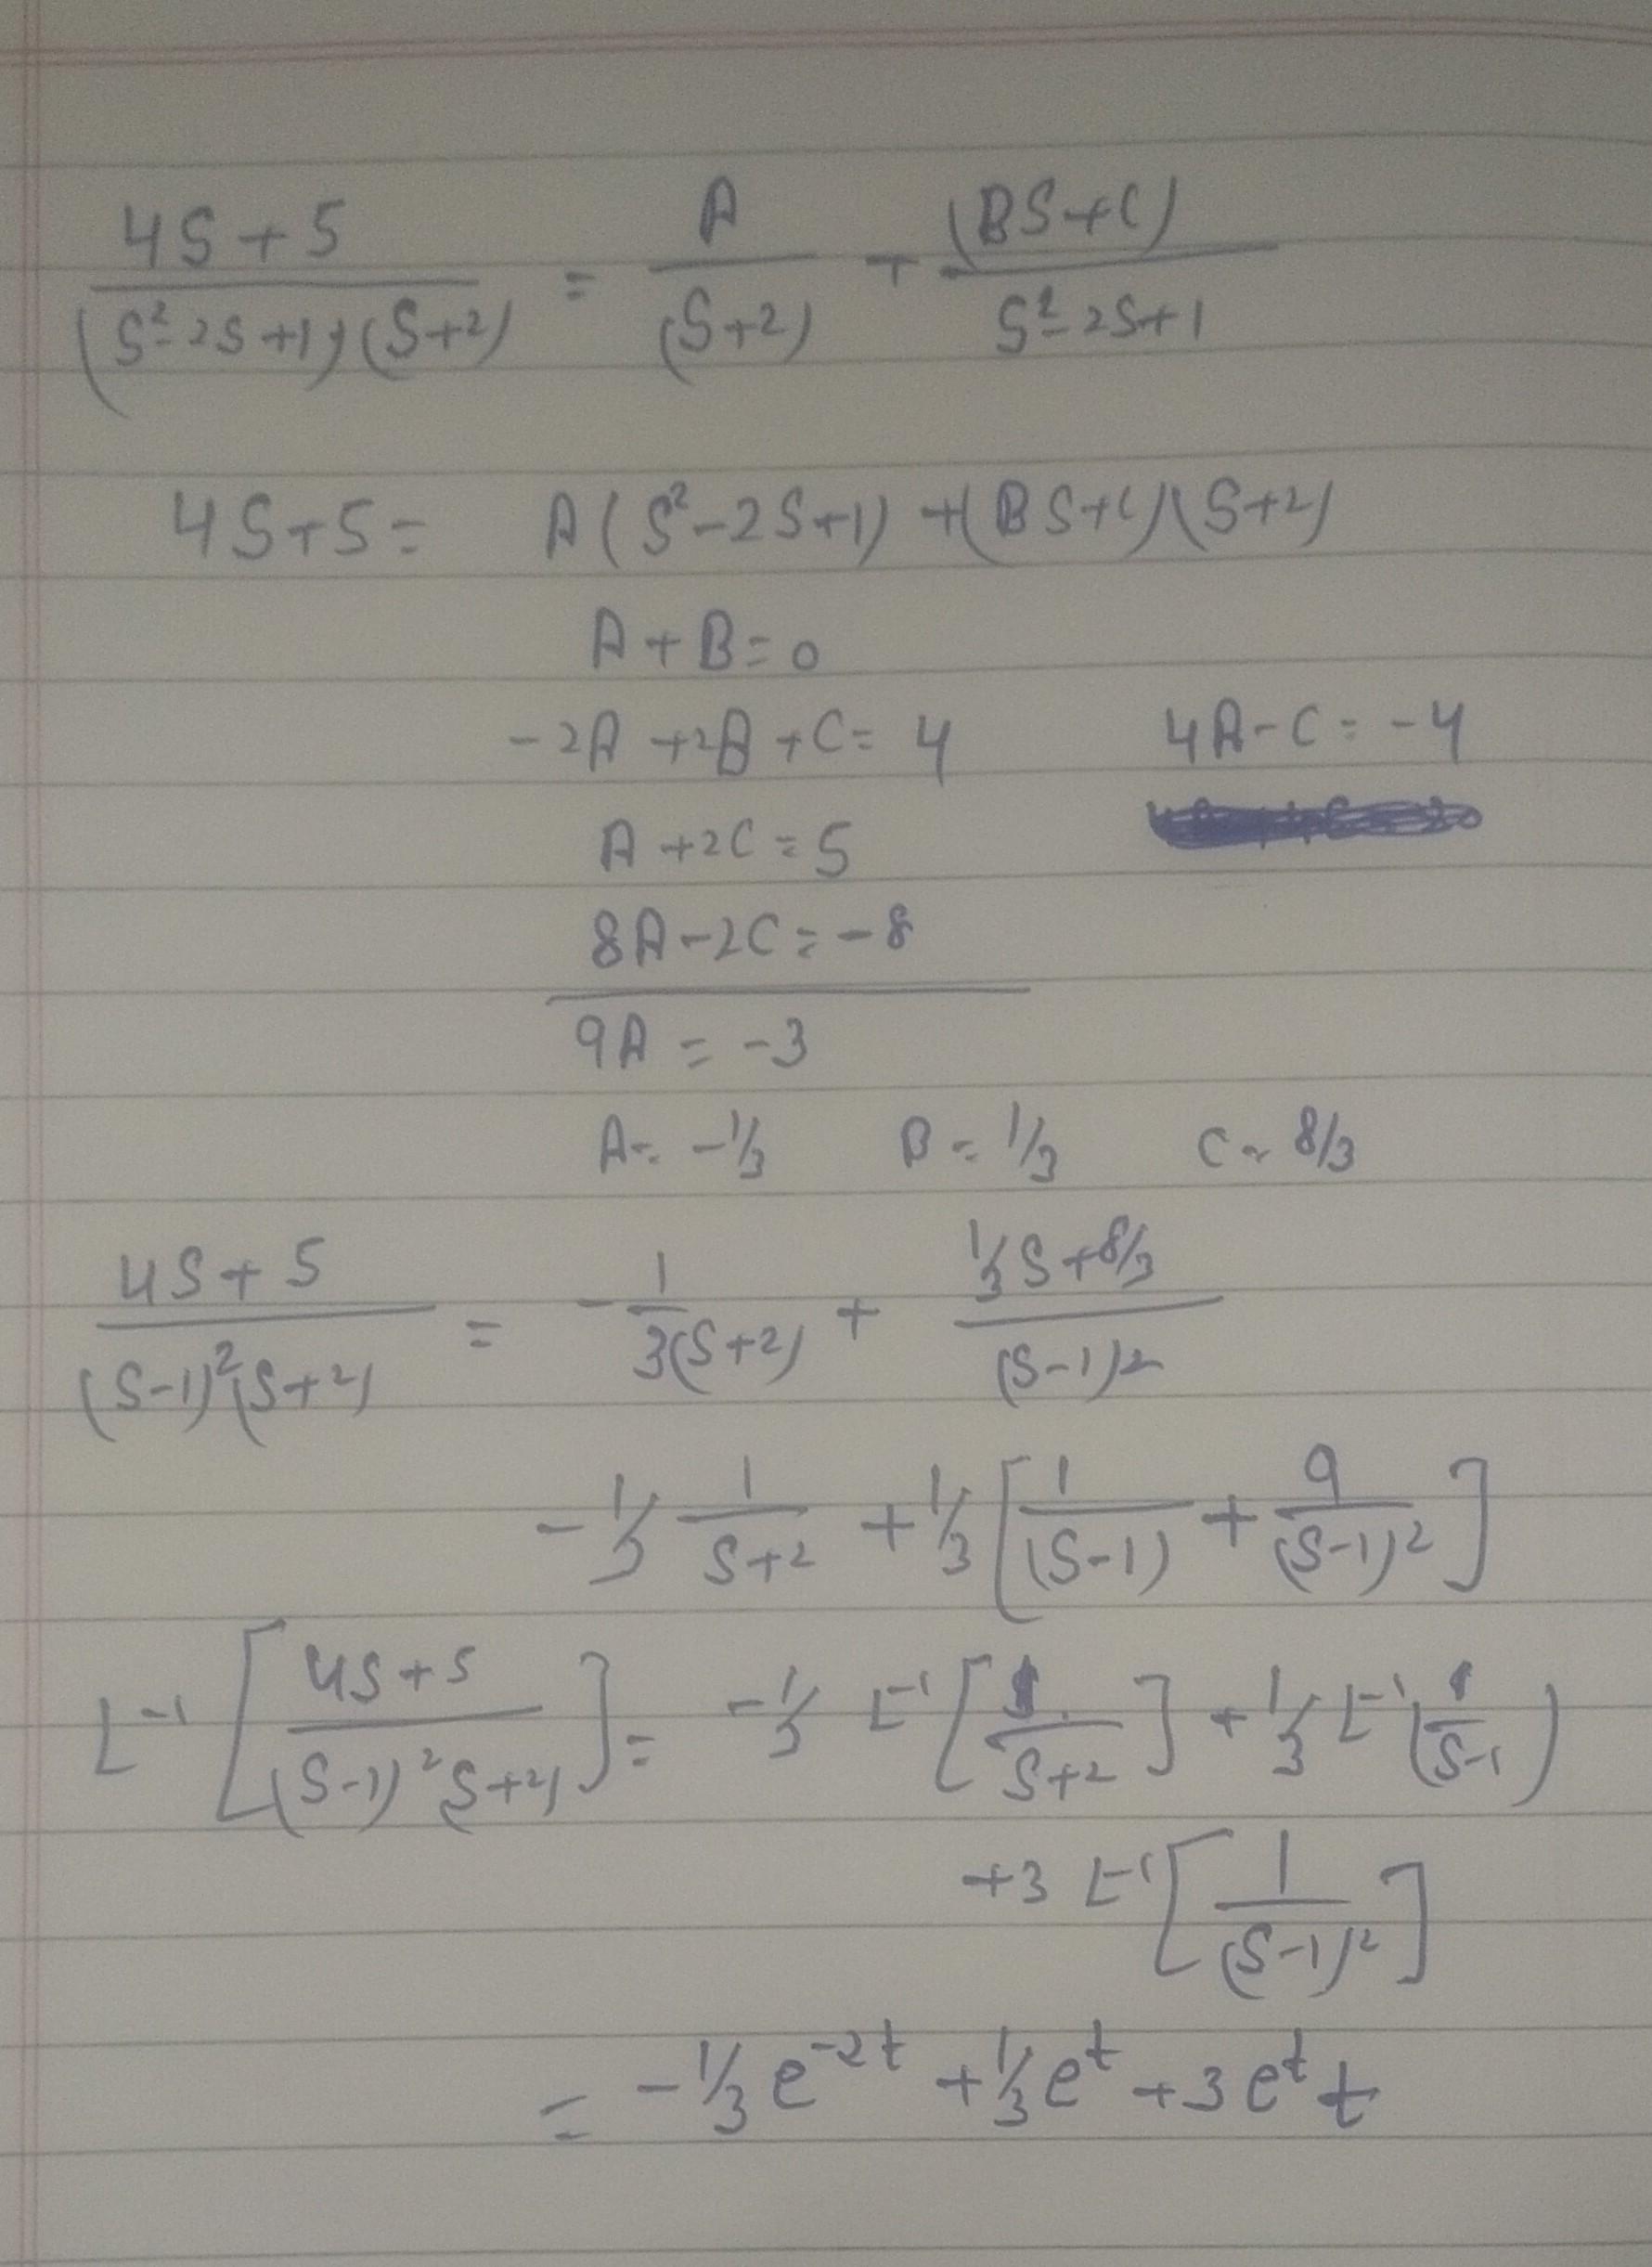 4S+5/(S²-2S+1)(S+2) = A/(S+2) + (BS+C)/S²-2S+1
4S+5= A(S²-2S+1)+(BS+C)(S+2)
A+B=0
-2A+2B+C=4 4A-C=-4
A+2C=5
8A-2C=-8
9A=-3
A=-1/3 B=1/3 C=8/3
4S+5/(S-1)²(S+2) = -1/3(S+2) + 1/3S+8/3/(S-1)2
-1/3 1/S+2 +1/3[1/(S-1)+9/(S-1)²]
L⁻¹[4S+5/(S-1)²(S+2)]= -1/3 L⁻¹[1/S+2]+1/3 L⁻¹(1/S-1)
+3 L⁻¹[1/(S-1)²]
= -1/3e^-2t +1/3e^t +3e^t t